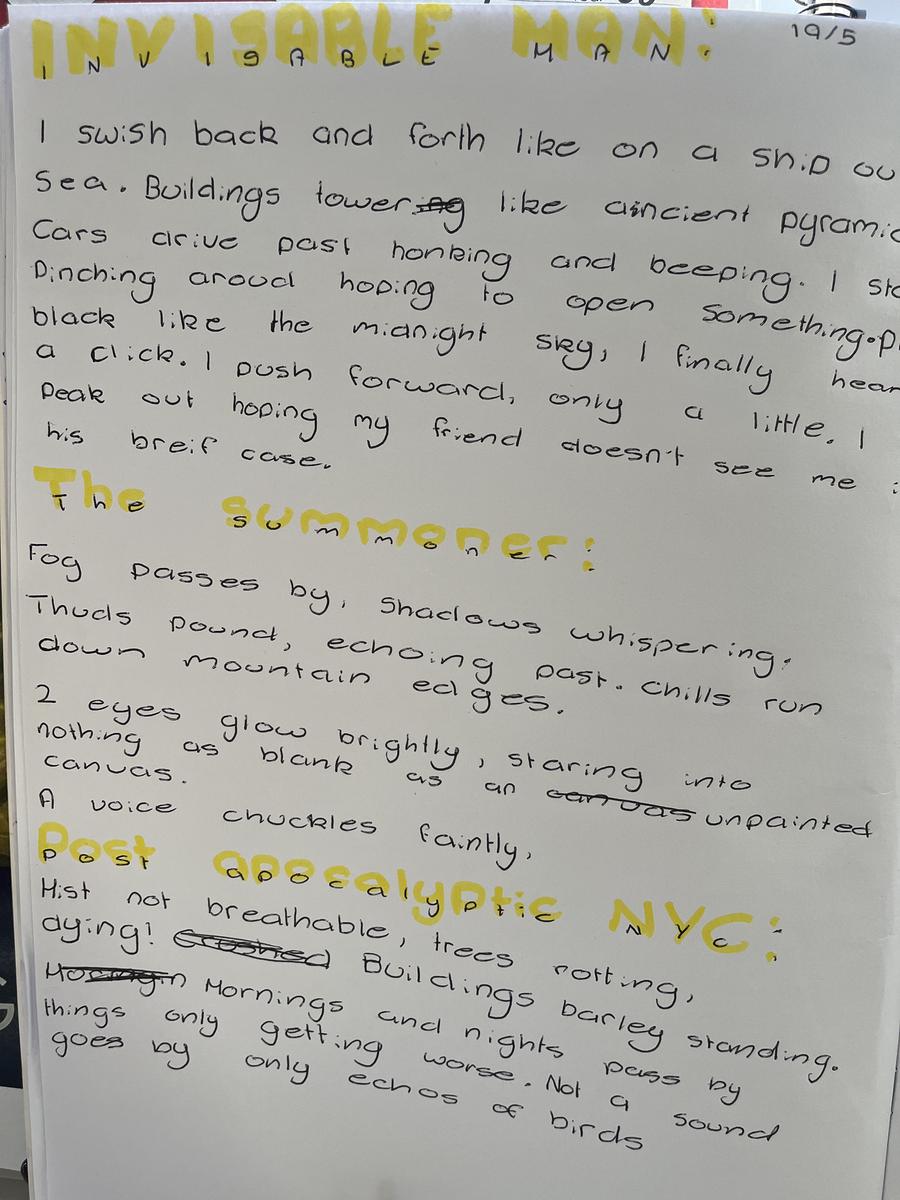 INVISABLE MAN:
19/5
I swish back and forth like on a ship ou
Sea. Buildings tower like aincient pyramid
Cars drive past honking and beeping. I sta
Pinching aroud hoping to open something.
black like the midnight sky, I finally hear
a click. I push forward, only a little. I
peak out hoping my friend doesn't see me
his breif case.
The summoner:
Fog passes by, shadows whispering.
Thuds pound, echoing past. Chills run
down mountain edges.
2 eyes glow brightly, staring into
nothing as blank as an canvas unpainted
canvas.
A voice chuckles faintly,
Post apocalyptic NYC:
Hist not breathable, trees rotting,
dying! Crushed Buildings barley standing.
Mornings and nights pass by
things only getting worse. Not a sound
goes by only echos of birds